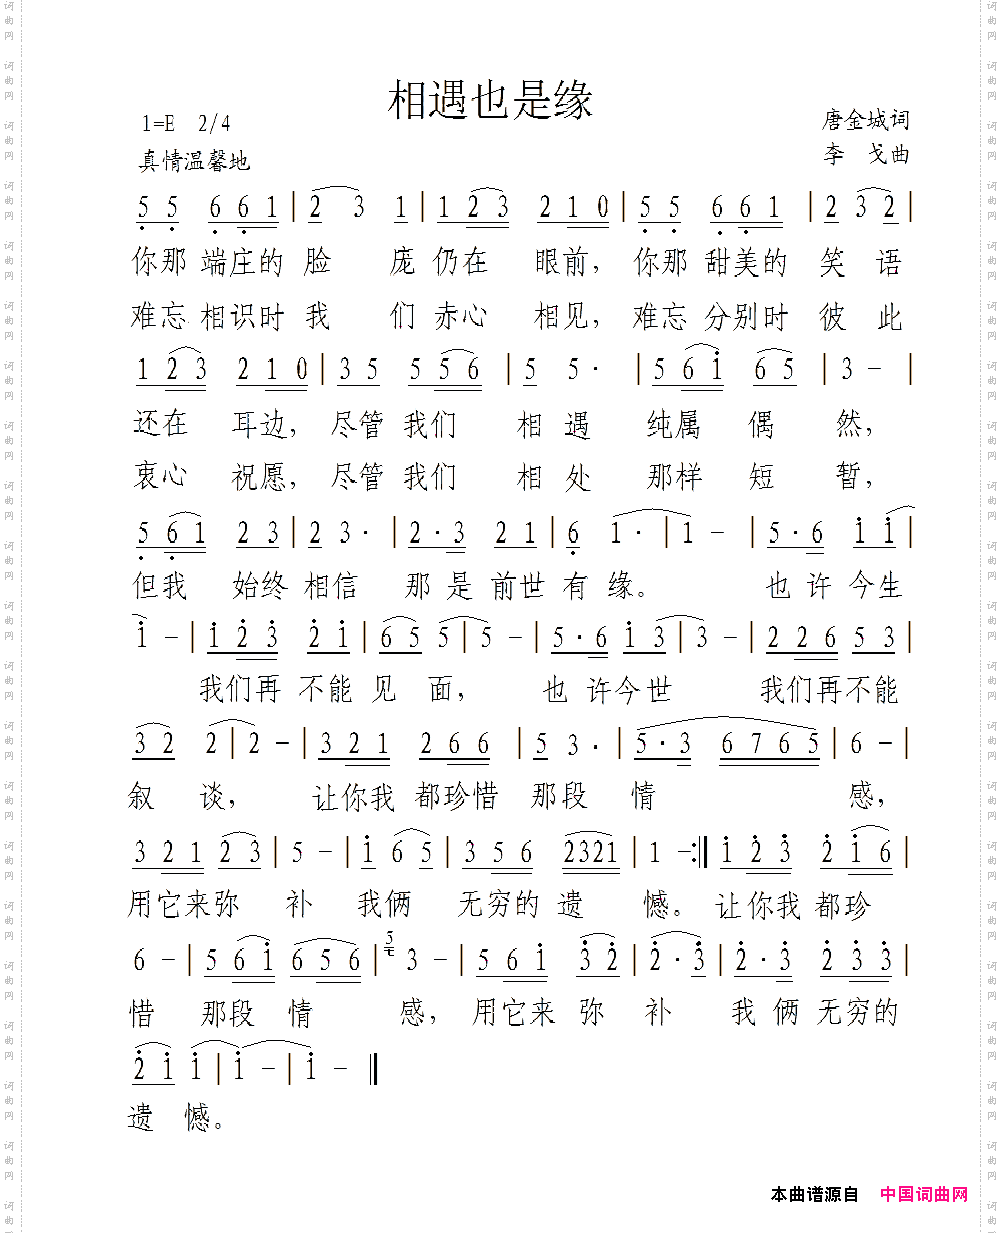 相遇也是缘
1=E 2/4
唐金城词
真情温馨地
李 戈曲
5 5 6 6 1 | 2 3 1 | 1 2 3 2 1 0 | 5 5 6 6 1 | 2 3 2 |
你那 端庄的 脸 庞 仍在 眼前， 你那 甜美的 笑 语
难忘 相识时 我 们 赤心 相见， 难忘 分别时 彼 此
1 2 3 2 1 0 | 3 5 5 5 6 | 5 5· | 5 6 i 6 5 | 3 - |
还在 耳边， 尽管 我们 相 遇 纯属 偶 然，
衷心 祝愿， 尽管 我们 相 处 那样 短 暂，
5 6 1 2 3 | 2 3· | 2·3 2 1 | 6 1· | 1 - | 5·6 i i |
但我 始终 相信 那 是 前世 有 缘。 也 许 今生
i - | i 2 3 2 i | 6 5 5 | 5 - | 5·6 i 3 | 3 - | 2 2 6 5 3 |
我们再 不能 见 面， 也 许今世 我们再不能
3 2 2 | 2 - | 3 2 1 2 6 6 | 5 3· | 5·3 6 7 6 5 | 6 - |
叙 谈， 让你我 都珍惜 那段 情 感，
3 2 1 2 3 | 5 - | i 6 5 | 3 5 6 2321 | 1 -:‖ i 2 3 2 i 6 |
用它来弥 补 我俩 无穷的 遗 憾。 让你我 都珍
6 - | 5 6 i 6 5 6 | 5 3 - | 5 6 i 3 2 | 2·3 | 2·3 2 3 3 |
惜 那段 情 感， 用它来 弥 补 我 俩 无穷的
2 i i | i - | i - ‖
遗 憾。
本曲谱源自 中国词曲网